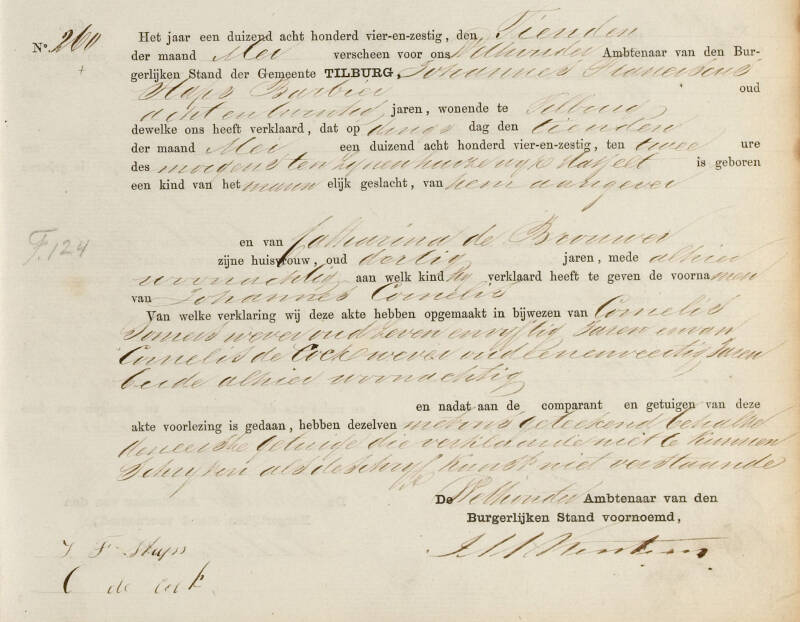 No. 260
Het jaar een duizend acht honderd vier-en-zestig, den Tienden
der maand Mei verscheen voor ons Wethouder Ambtenaar van den Bur-
gerlijken Stand der Gemeente TILBURG, Johannes Franciscus
Staps Barbier oud
acht en twintig jaren, wonende te Tilburg
dewelke ons heeft verklaard, dat op dings dag den tienden
der maand Mei een duizend acht honderd vier-en-zestig, ten twee ure
des morgens ten zijnen huize wijk Hasselt is geboren
een kind van het mann elijk geslacht, van hem aangever
F. 124
en van Catharina de Brouwer
zijne huisvrouw, oud dertig jaren, mede alhier
woonachtig aan welk kind hij verklaard heeft te geven de voornamen
van Johannes Cornelis
Van welke verklaring wij deze akte hebben opgemaakt in bijwezen van Cornelis
Somers wever oud zeven en vyftig Jaren en van
Cornelis de Cock wever oud een en veertig Jaren
beide alhier woonachtig
en nadat aan de comparant en getuigen van deze
akte voorlezing is gedaan, hebben dezelven met ons geteekend behalve
den eerste getuige die verklaarde niet te kunnen
schryven als de schryf kunst niet verstaande
De Wethouder Ambtenaar van den
Burgerlijken Stand voornoemd,
J F Staps
C de Cock